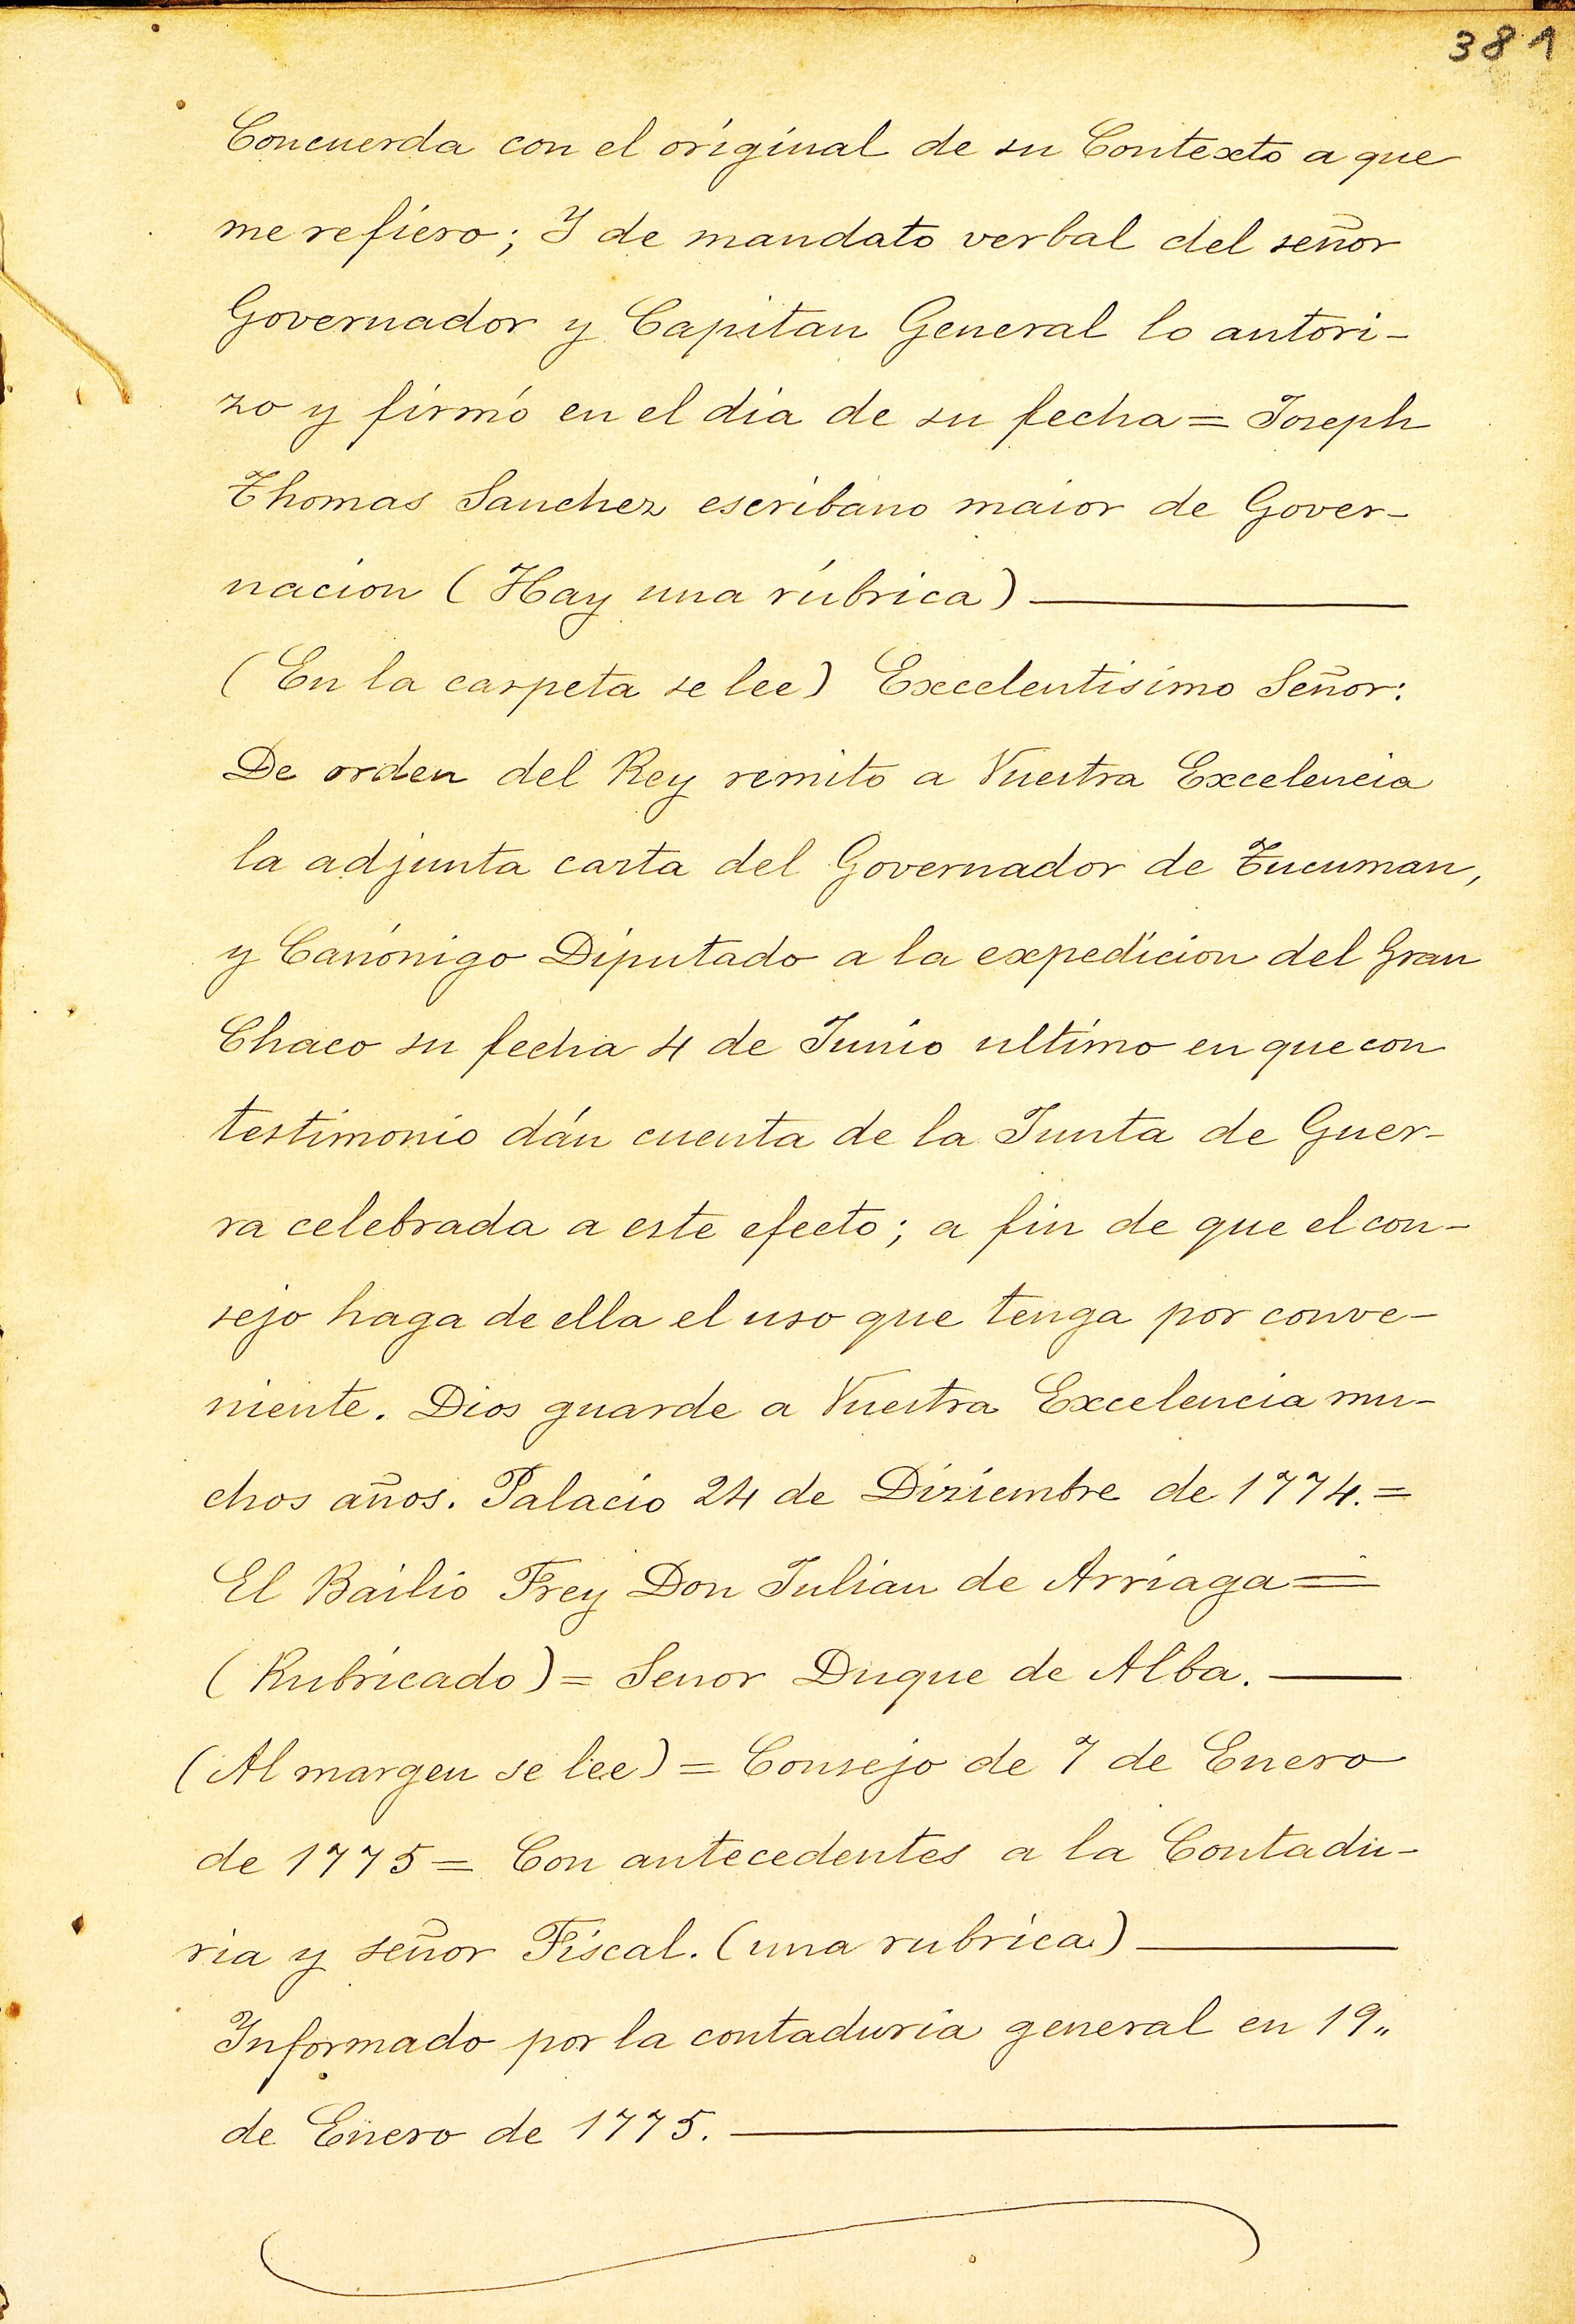 381
Concuerda con el original de su Contexto a que
me refiero; Y de mandato verbal del señor
Governador y Capitan General lo autori-
zo y firmó en el dia de su fecha = Joseph
Thomas Sanchez escribano maior de Gover-
nacion (Hay una rúbrica)
(En la carpeta se lee) Excelentisimo Señor:
De orden del Rey remito a Vuestra Excelencia
la adjunta carta del Governador de Tucuman,
y Canónigo Diputado a la expedicion del Gran
Chaco su fecha 4 de Junio ultimo en que con
testimonio dán cuenta de la Junta de Guer-
ra celebrada a este efecto; a fin de que el con-
sejo haga de ella el uso que tenga por conve-
niente. Dios guarde a Vuestra Excelencia mu-
chos años. Palacio 24 de Diziembre de 1774. =
El Bailio Frey Don Julian de Arriaga =
(Rubricado) = Senor Duque de Alba.
(Al margen se lee) = Consejo de 7 de Enero
de 1775 = Con antecedentes a la Contadu-
ria y señor Fiscal. (una rubrica)
Informado por la contaduria general en 19„
de Enero de 1775.